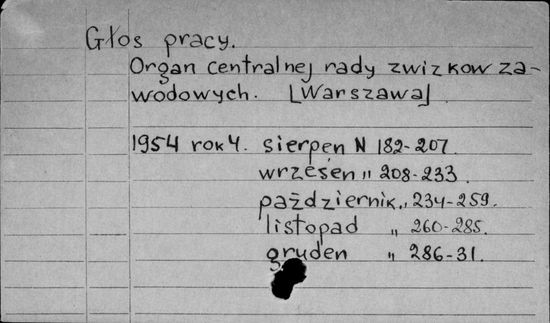 Głos pracy.
Organ centralnej rady zwizkow za-
wodowych. [Warszawa]
1954 rok 4. sierpen N 182-207
wrzesen " 208-233
październik " 234-259.
listopad " 260-285.
gruden " 286-31.